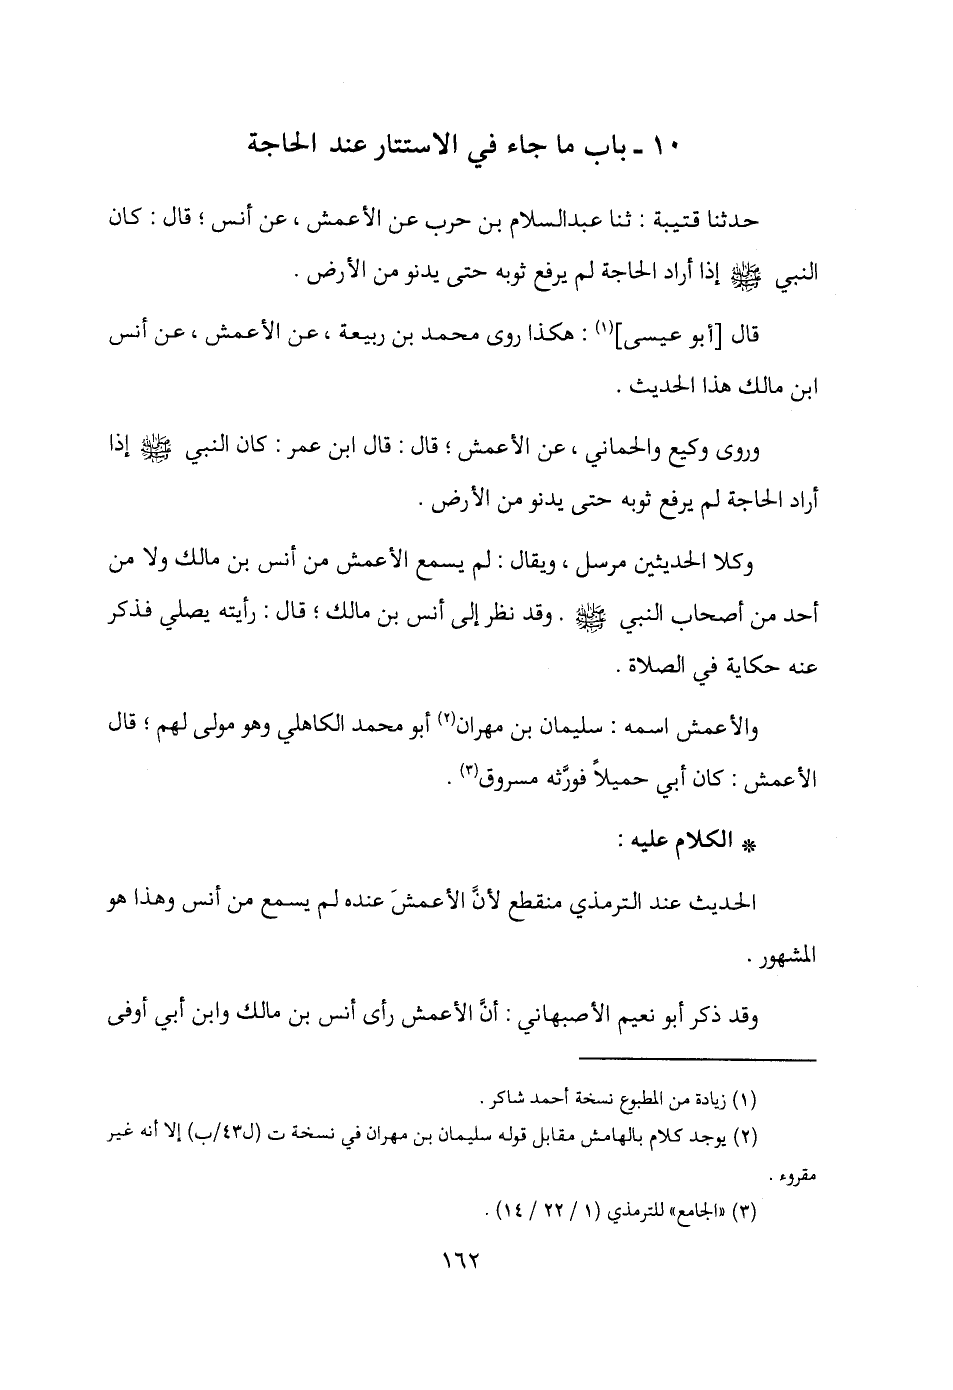 ١٠ - باب ما جاء في الاستتار عند الحاجة
حدثنا قتيبة : ثنا عبدالسلام بن حرب عن الأعمش ، عن أنس ؛ قال : كان
النبي ﷺ إذا أراد الحاجة لم يرفع ثوبه حتى يدنو من الأرض .
قال [أبو عيسى](١) : هكذا روى محمد بن ربيعة ، عن الأعمش ، عن أنس
ابن مالك هذا الحديث .
وروى وكيع والحماني ، عن الأعمش ؛ قال : قال ابن عمر : كان النبي ﷺ إذا
أراد الحاجة لم يرفع ثوبه حتى يدنو من الأرض .
وكلا الحديثين مرسل ، ويقال : لم يسمع الأعمش من أنس بن مالك ولا من
أحد من أصحاب النبي ﷺ . وقد نظر إلى أنس بن مالك ؛ قال : رأيته يصلي فذكر
عنه حكاية في الصلاة .
والأعمش اسمه : سليمان بن مهران(٢) أبو محمد الكاهلي وهو مولى لهم ؛ قال
الأعمش : كان أبي حميلاً فورَّثه مسروق(٣) .
* الكلام عليه :
الحديث عند الترمذي منقطع لأنَّ الأعمشَ عنده لم يسمع من أنس وهذا هو
المشهور .
وقد ذكر أبو نعيم الأصبهاني : أنَّ الأعمش رأى أنس بن مالك وابن أبي أوفى
(١) زيادة من المطبوع نسخة أحمد شاكر .
(٢) يوجد كلام بالهامش مقابل قوله سليمان بن مهران في نسخة ت (ل٤٣/ب) إلا أنه غير
مقروء .
(٣) «الجامع» للترمذي (١ / ٢٢ / ١٤) .
١٦٢